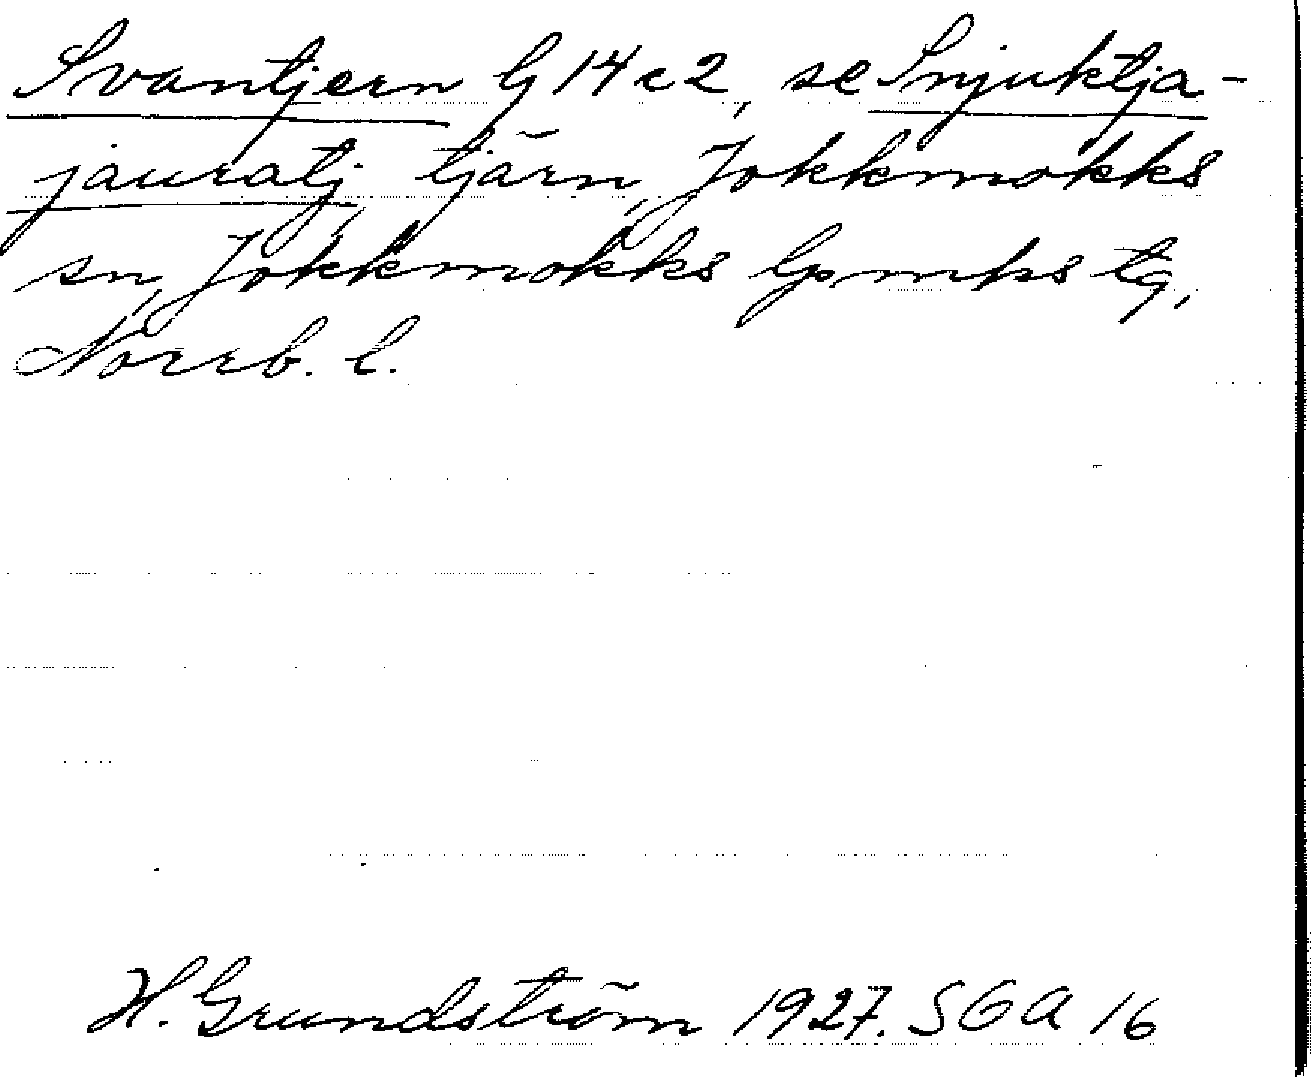 Svantjern lj 14 c 2, se Snjuktja-
jauratj, tjärn, Jokkmokks
sn, Jokkmokks lpmks tg,
Norrb. l.
H. Grundström 1927. SGA 16